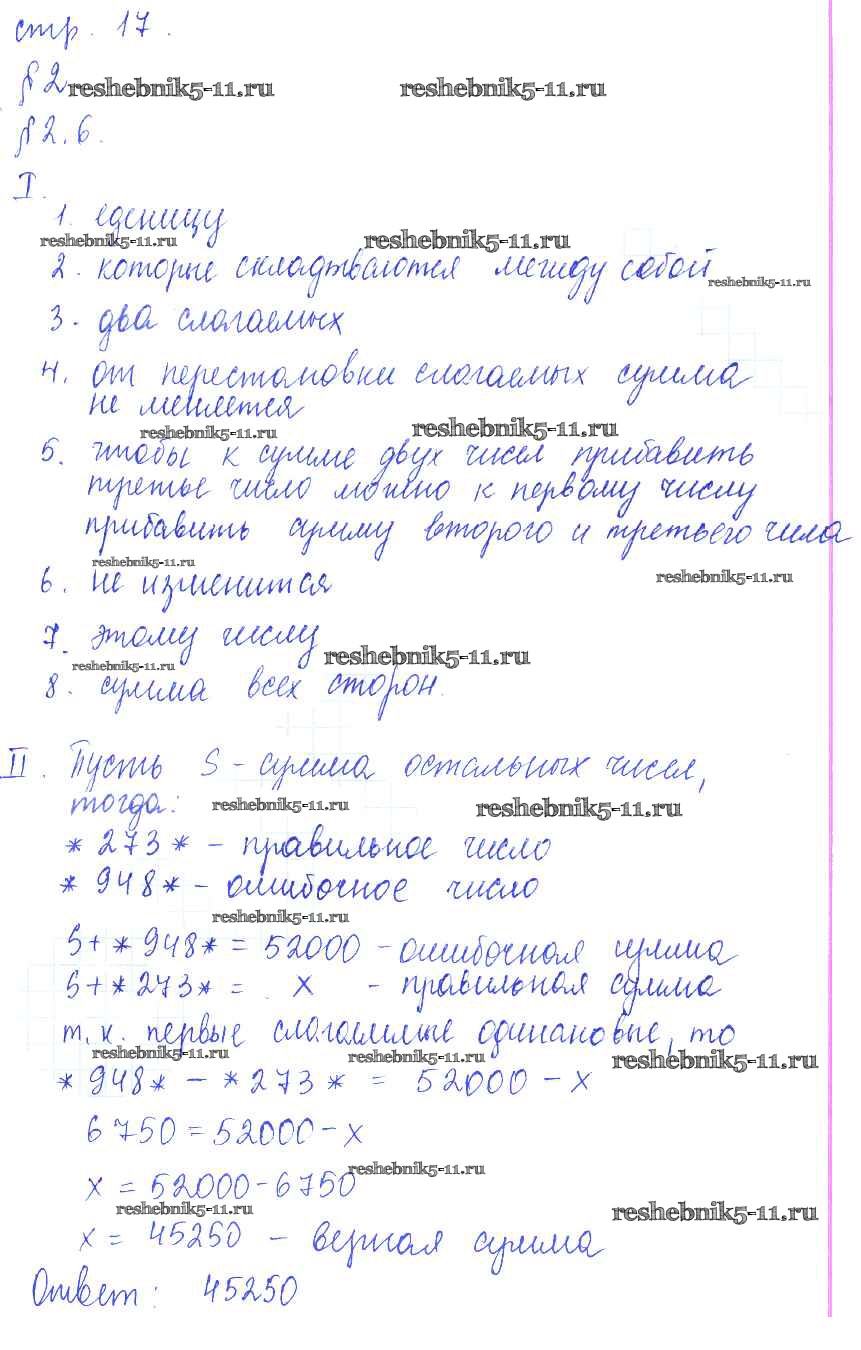 стр. 17.
§ 2 reshebnik5-11.ru reshebnik5-11.ru
§ 2.6.
I.
1. еденицу
reshebnik5-11.ru reshebnik5-11.ru
2. которые складтваются между собой
reshebnik5-11.ru
3. два слагаемых
4. от перестановки слагаемых сумма
не меняется
reshebnik5-11.ru reshebnik5-11.ru
5. чтобы к сумме двух чисел прибавить
третье число можно к первому числу
прибавить сумму второго и третьего чила
reshebnik5-11.ru
6. не изменится reshebnik5-11.ru
7. этому числу
reshebnik5-11.ru reshebnik5-11.ru
8. сумма всех сторон.
II. Пусть S - сумма остальных чисел,
тогда: reshebnik5-11.ru reshebnik5-11.ru
* 273 * - правильное число
* 948 * - ошибочное число
reshebnik5-11.ru
S + * 948 * = 52000 - ошибочная сумма
S + * 273 * = x - правильная сумма
т.к. первые слагаемые одинаковые, то
reshebnik5-11.ru reshebnik5-11.ru reshebnik5-11.ru
* 948 * - * 273 * = 52000 - x
6750 = 52000 - x
reshebnik5-11.ru
x = 52000 - 6750
reshebnik5-11.ru reshebnik5-11.ru
x = 45250 - верная сумма
Ответ: 45250